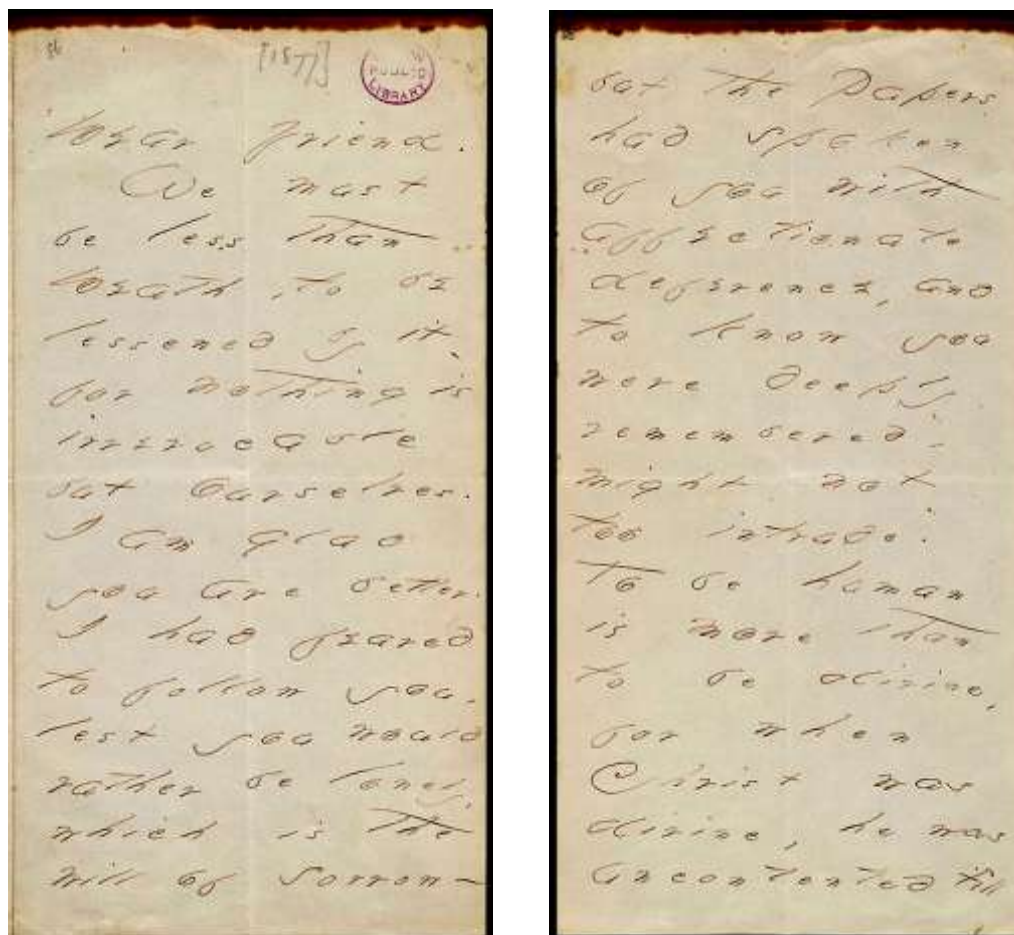 [1877]
LIBRARY
Dear friend.
We must
be less than
Death, to be
lessened by it,
for nothing is
irrevocable
but ourselves.
I am glad
you are better.
I had feared
to follow you,
lest you would
rather be lonely,
which is the
will of sorrow—
but the Papers
had spoken
of you with
affectionate
deference, and
to know you
were deeply
remembered,
might not
too intrude.
To be human
is more than
to be divine,
for when
Christ was
divine, he was
uncontented till